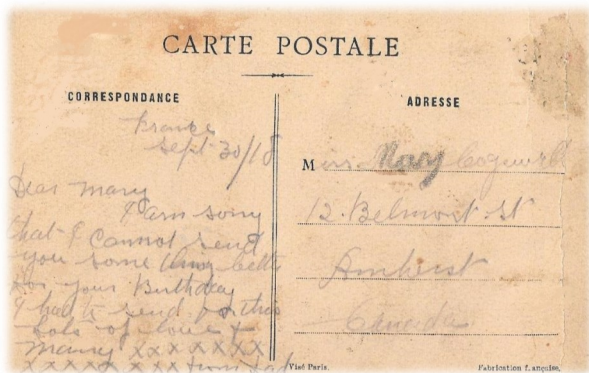 CARTE POSTALE
CORRESPONDANCE
France
Sept 30/18
Dear Mary
I am sorry
that I cannot send
you some thing better
for your Birthday
I had to send for this
lots of love &
many xxxxxxx
xxxxxxxxx from
ADRESSE
Miss Mary
12. Belmont St
Amherst
Canada
Visé Paris.
Fabrication française.